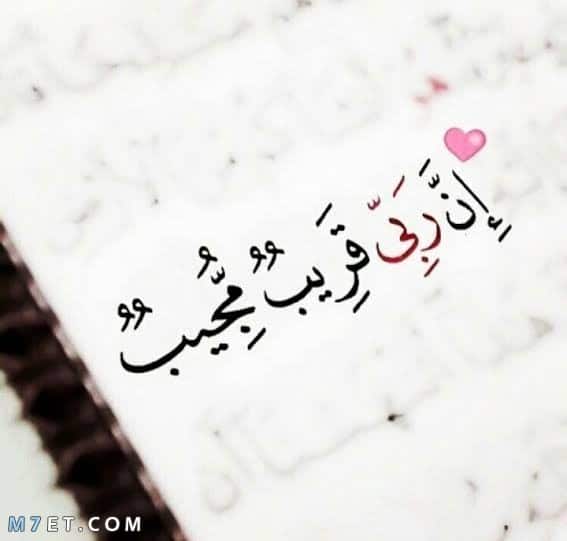 إِنَّ رَبِّىَ قَرِيبٌ مُّجِيبٌ
M7ET.COM